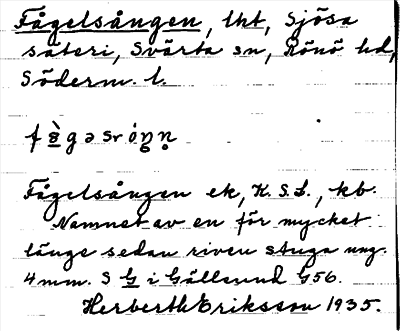 Fågelsången, lht, Sjösa
säteri, Svärta sn, Rönö hd,
Söderm. l.
Fågelsången ek, K. S. L., kb.
Namnet av en för mycket
länge sedan riven stuga ung.
4 mm. S G i Gällsund G56.
Herberth Eriksson 1935.